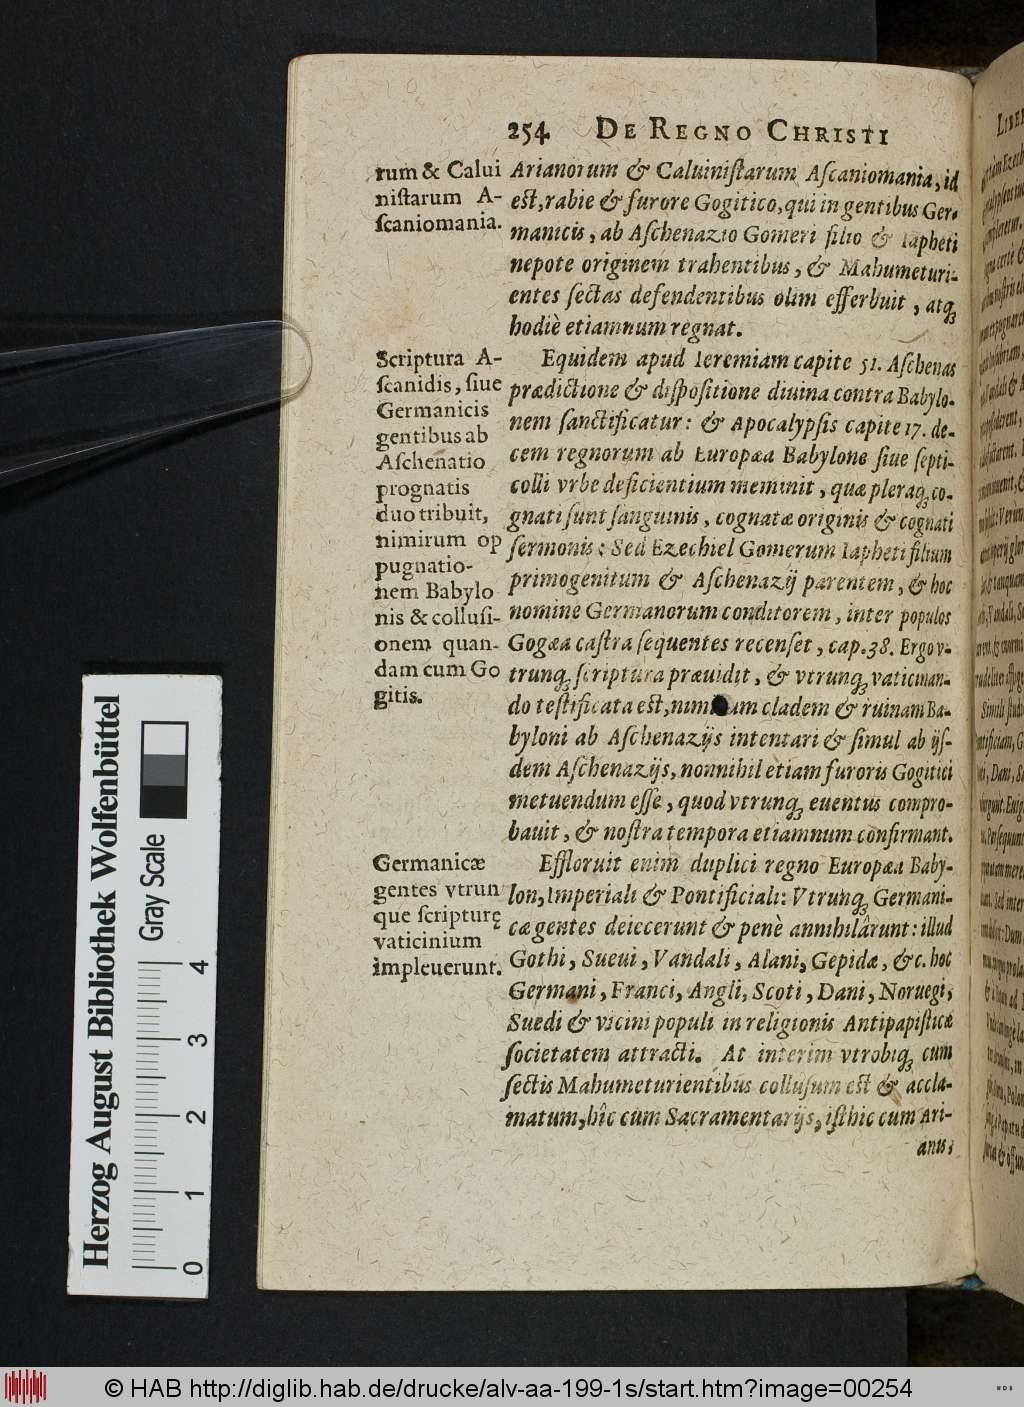 254 DE REGNO CHRISTI
rum & Calui
niſtarum A-
ſcaniomania.
Arianorum & Caluiniſtarum Aſcaniomania, id
eſt, rabie & furore Gogitico, qui in gentibus Ger-
manicis, ab Aſchenazio Gomeri filio & Iapheti
nepote originem trahentibus, & Mahumeturi-
entes ſectas defendentibus olim efferbuit, atq;
hodiè etiamnum regnat.
Scriptura A-
ſcanidis, ſiue
Germanicis
gentibus ab
Aſchenatio
prognatis
duo tribuit,
nimirum op
pugnatio-
nem Babylo
nis & colluſi-
onem quan-
dam cum Go
gitis.
Equidem apud Ieremiam capite 51. Aſchenas
prædictione & diſpoſitione diuina contra Babylo-
nem ſanctificatur: & Apocalypſis capite 17. de-
cem regnorum ab Europæa Babylone ſiue ſepti-
colli vrbe deficientium meminit, quæ pleraq; co-
gnati ſunt ſanguinis, cognatæ originis & cognati
ſermonis: Sed Ezechiel Gomerum Iapheti filium
primogenitum & Aſchenazij parentem, & hoc
nomine Germanorum conditorem, inter populos
Gogæa caſtra ſequentes recenſet, cap. 38. Ergo v-
trunq; ſcriptura præuidit, & vtrunq; vaticinan-
do teſtificata eſt, cladem & ruinam Ba-
byloni ab Aſchenazijs intentari & ſimul ab ijſ-
dem Aſchenazijs, nonnihil etiam furoris Gogitici
metuendum eſſe, quod vtrunq; euentus compro-
bauit, & noſtra tempora etiamnum confirmant.
Germanicæ
gentes vtrun
que ſcripturę
vaticinium
impleuerunt.
Effloruit enim duplici regno Europæa Baby-
lon, Imperiali & Pontificiali: Vtrunq; Germani-
cæ gentes deiecerunt & penè annihilârunt: illud
Gothi, Sueui, Vandali, Alani, Gepidæ, &c. hoc
Germani, Franci, Angli, Scoti, Dani, Noruegi,
Suedi & vicini populi in religionis Antipapiſticæ
ſocietatem attracti. At interim vtrobiq; cum
ſectis Mahumeturientibus colluſum eſt & accla-
matum, hîc cum Sacramentarijs, iſthic cum Ari-
anis,
Herzog August Bibliothek Wolfenbüttel
Gray Scale
0 1 2 3 4
© HAB http://diglib.hab.de/drucke/alv-aa-199-1s/start.htm?image=00254